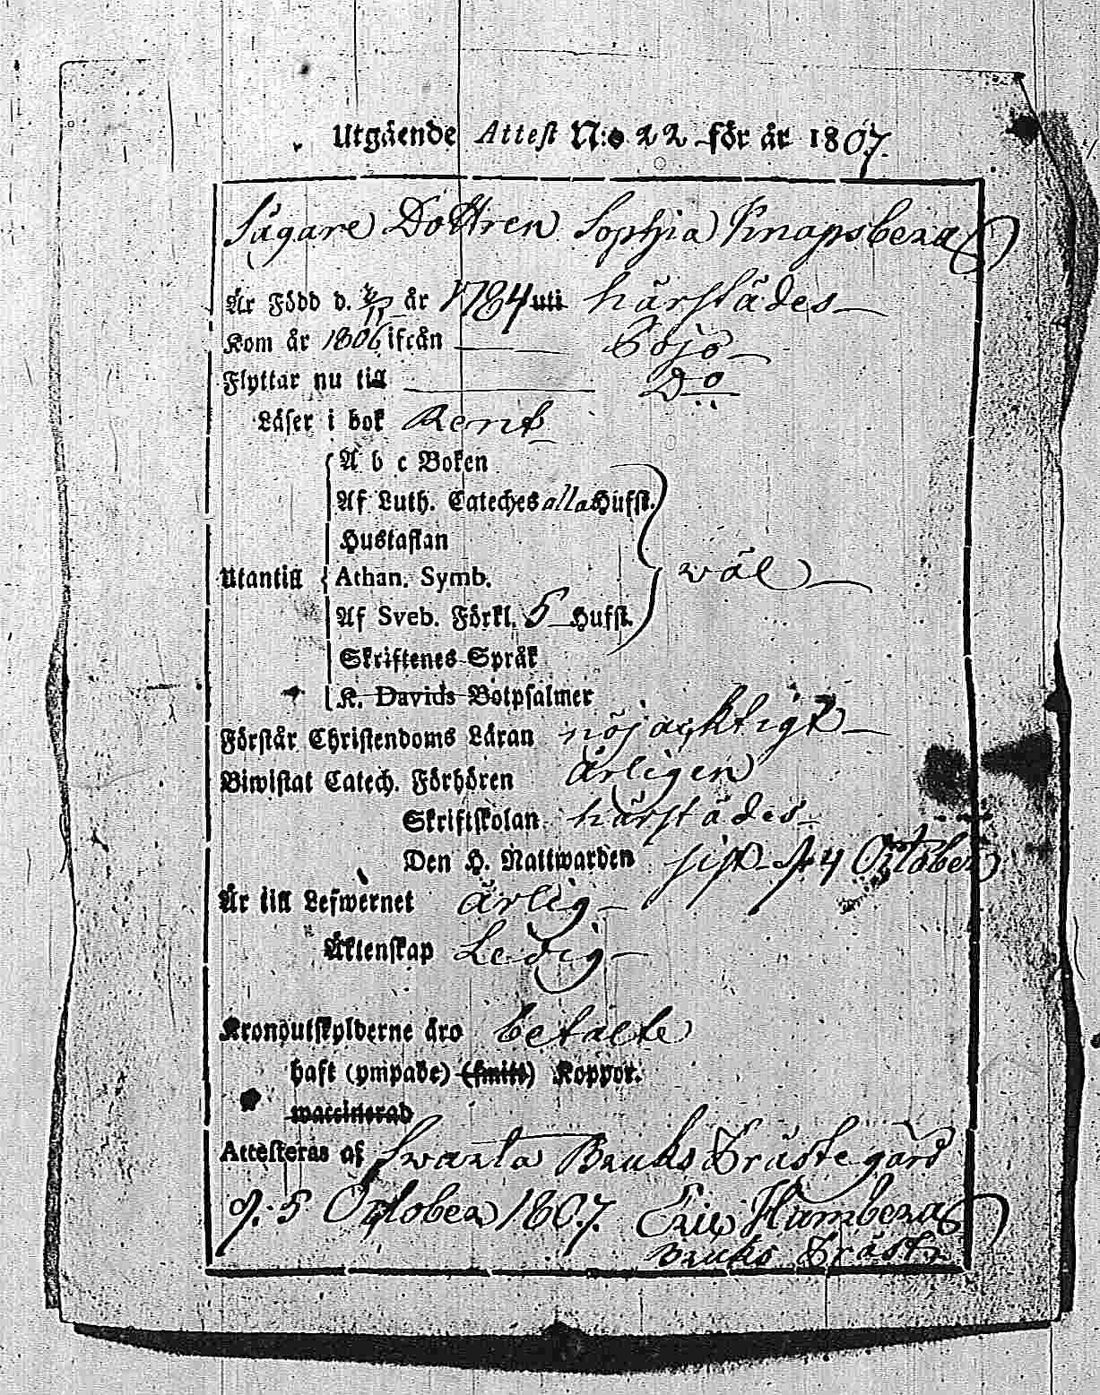 Utgående Attest N:o 22 för år 1807.
Sågare Dottren Sophia Knapsberg
Är Född d. år 1784 uti härstädes
Kom år 1806 ifrån Bojö
Flyttar nu till Do
Läser i bok Rent
A b c Boken
Af Luth. Cateches alla Hufst.
Hustaflan
Utantill Athan. Symb. wäl
Af Sveb. Förkl. 5 Hufst.
Skriftenes Språk
K. Davids Botpsalmer
Förstår Christendoms Läran nöjacktigt
Biwistat Catech. Förhören årligen
Skriftskolan härstädes
Den H. Nattwarden sist d. 4 October
Är till Lefwernet ärlig
Äktenskap Ledig
Kronoutskylderne äro betalte
haft (ympade) (smitt) Koppor.
waccinerad
Attesteras af Swarta Bruks Prästegård
d. 5 October 1807. Eric Hamberg
Bruks Präst